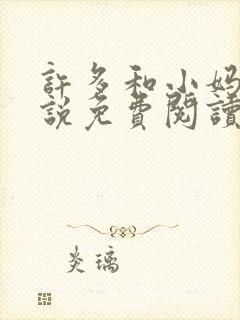 許多和小妈
說免費閱讀
炎璃